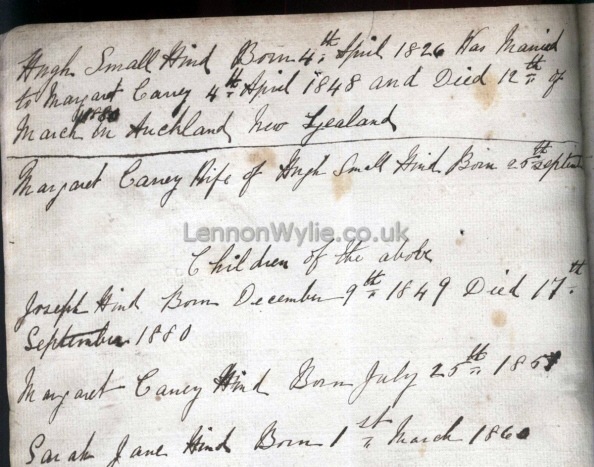 Hugh Small Hind Born 4th April 1826 Was Married
to Margaret Carey 4th April 1848 and Died 12th of
1880
March in Auckland New Zealand
Margaret Carey Wife of Hugh Small Hind Born 25th Septem
LennonWylie.co.uk
Children of the above
Joseph Hind Born December 9th 1849 Died 17th
September 1880
Margaret Carey Hind Born July 25th
Sarah Jane Hind Born 1st March 1860